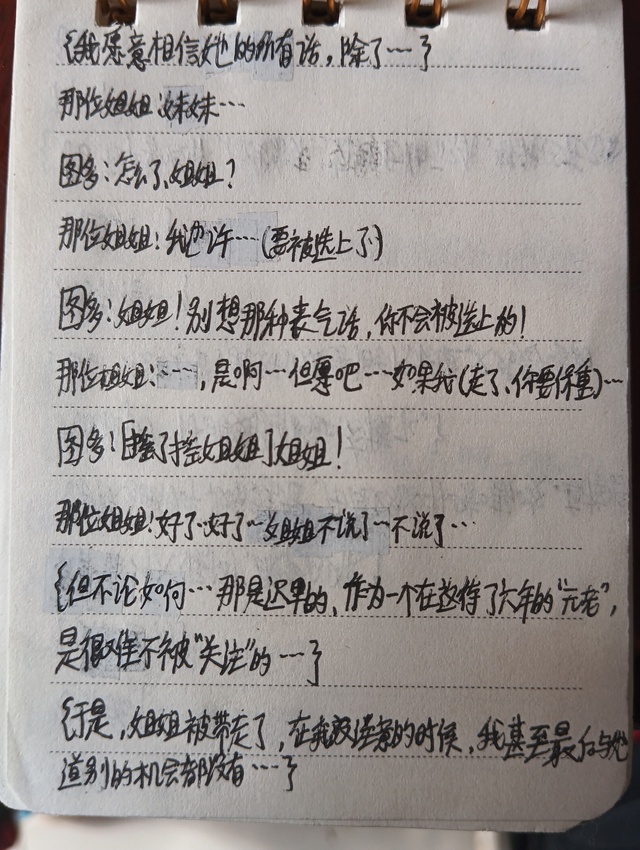 {我愿意相信她的所有话，除了…}
那位姐姐：妹妹…
图多：怎么了，姐姐？
那位姐姐：我也许…(要被选上了)
图多：姐姐！别想那种丧气话，你不会被选上的！
那位姐姐：…，是啊…但愿吧…如果我(走了，你要保重)…
图多：[摇了摇姐姐]姐姐！
那位姐姐：好了好了…姐姐不说了…不说了…
{但不论如何…那是迟早的，作为一个在这待了六年的“元老”，
是很难不被“关注”的…}
{于是，姐姐被带走了，在我没注意的时候，我甚至最后与她
道别的机会都没有…}